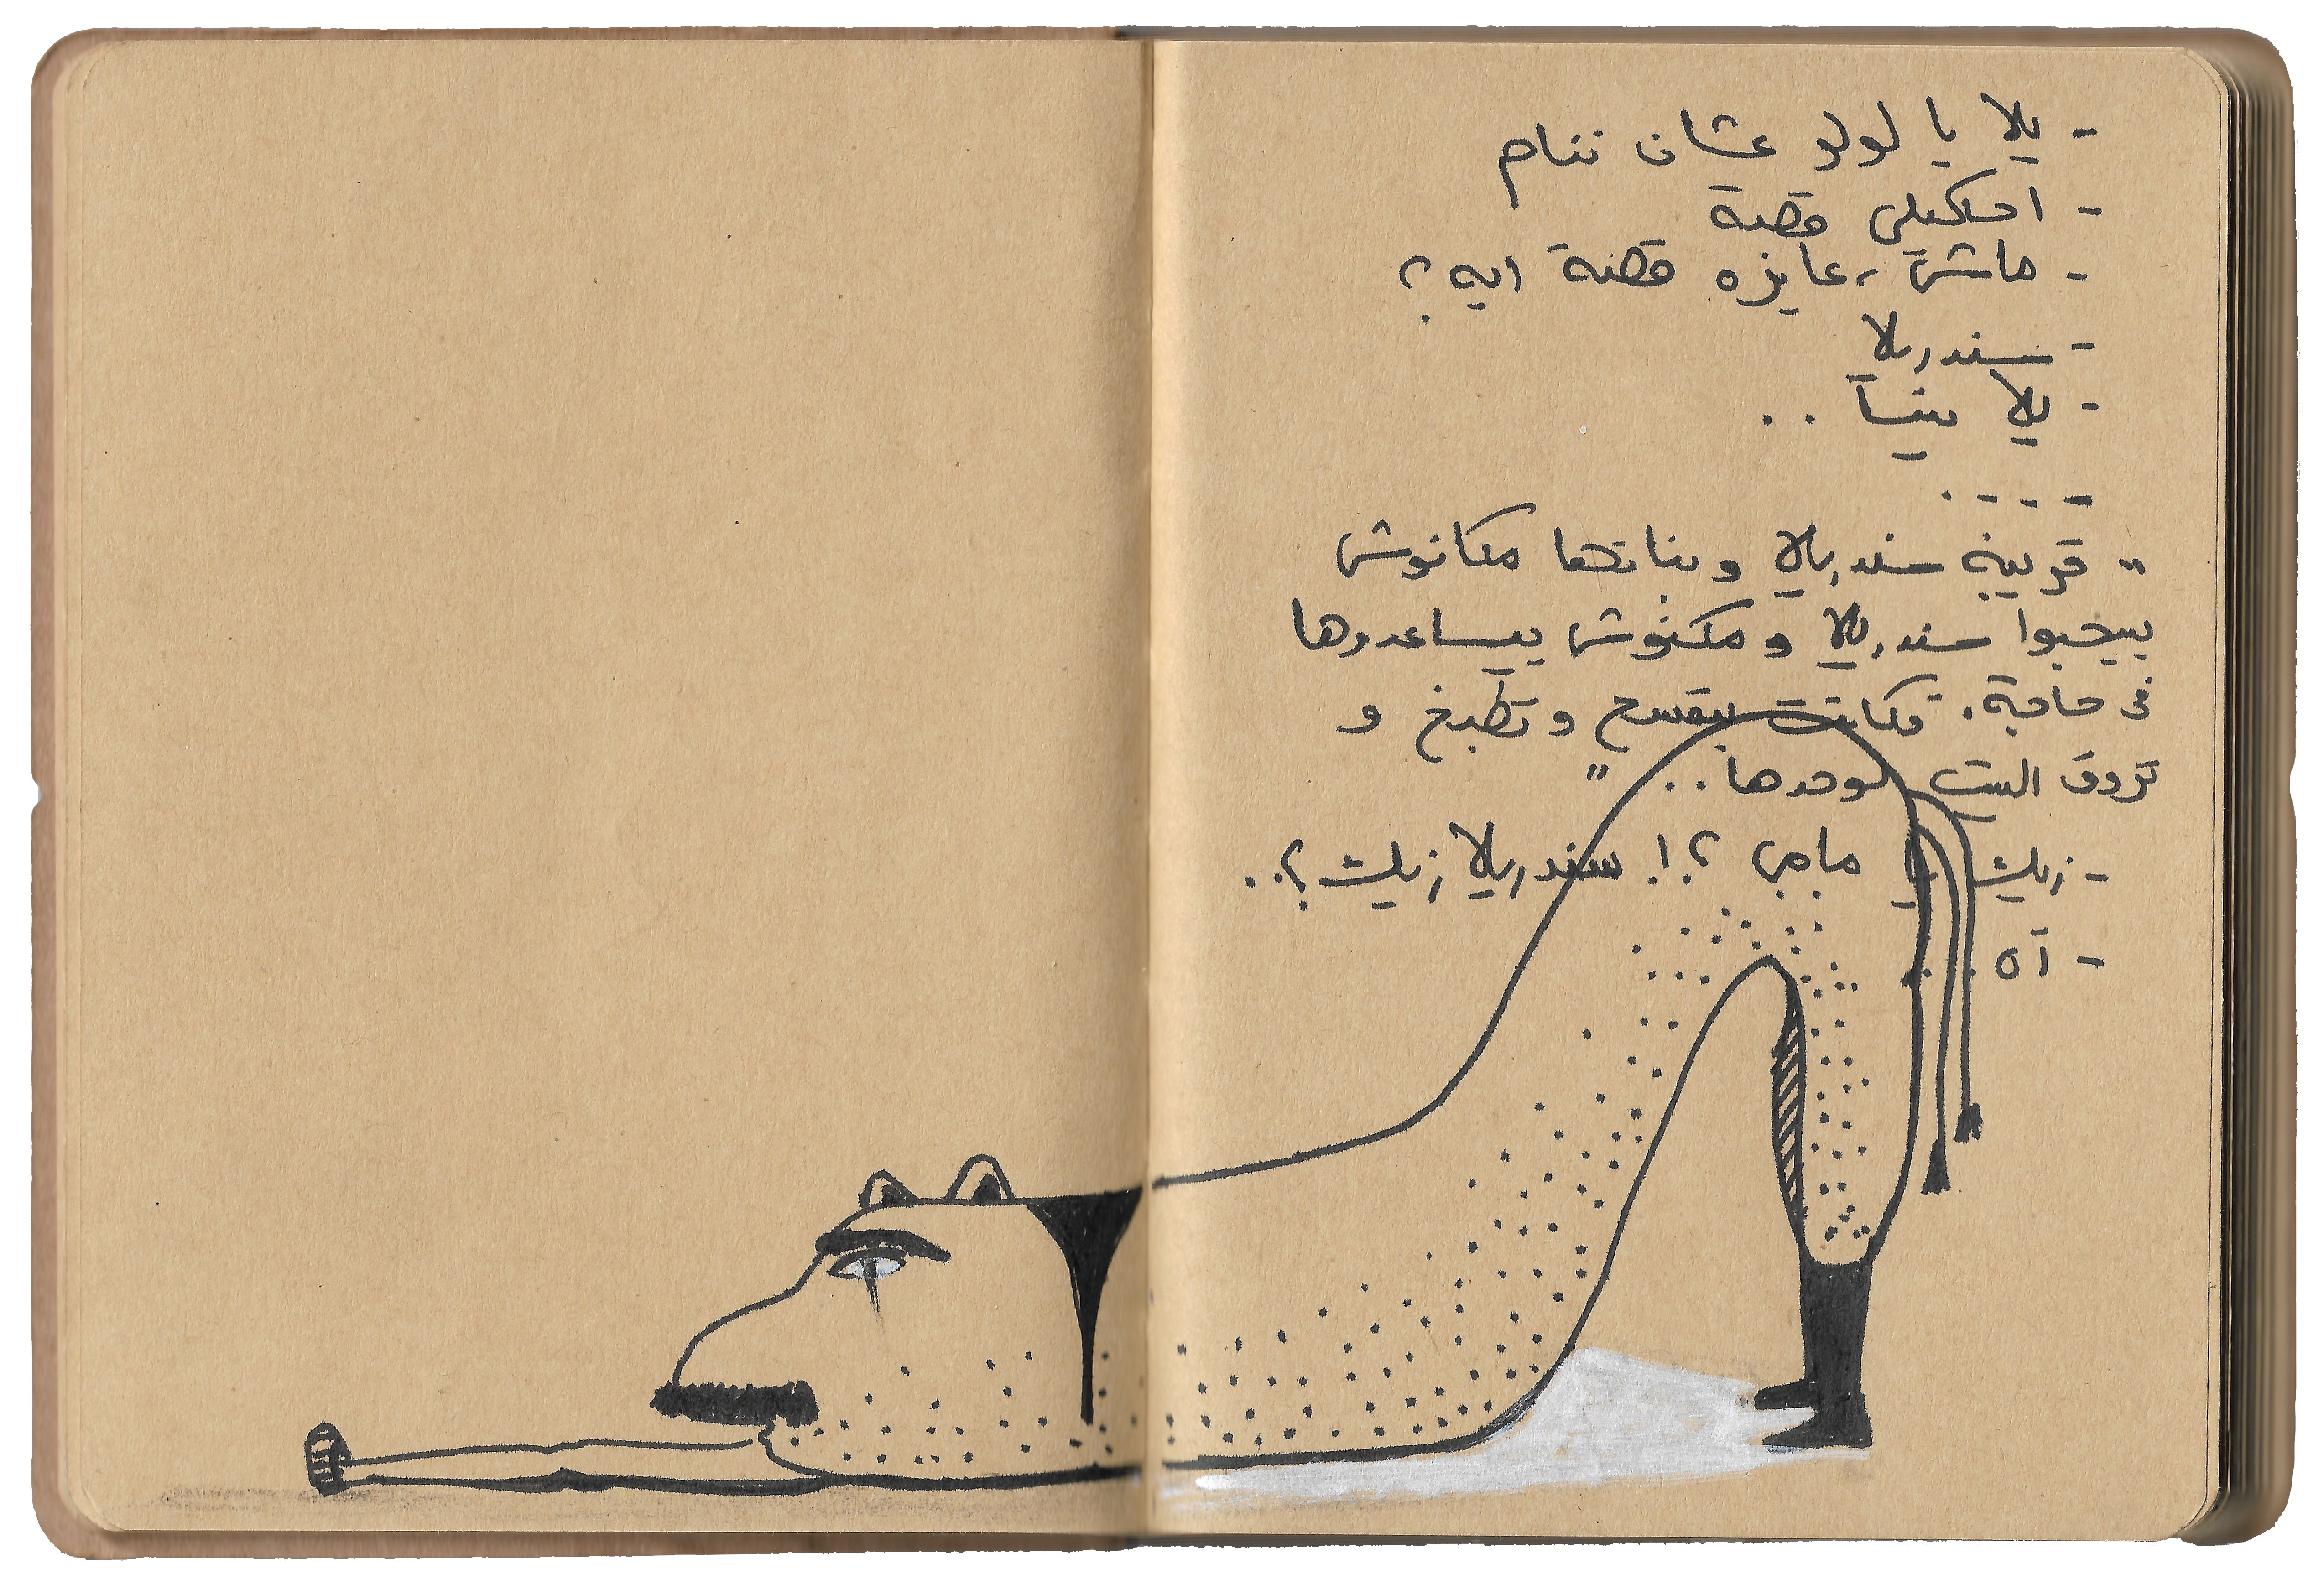 - يلا يا لولو عشان ننام
- احكيلى قصة
- ماشى، عايزه قصة ايه؟
- سندريلا
- يلا بينا ..
- - - - .
" قرينة سندريلا وبناتها مكانوش
بيحبوا سندريلا و مكنوش بيساعدوها
فى حاجة. فكانت بتمسح و تطبخ و
تروق البيت لوحدها .. "
- زيك يا مامى ؟! سندريلا زيك ؟..
- آه ...